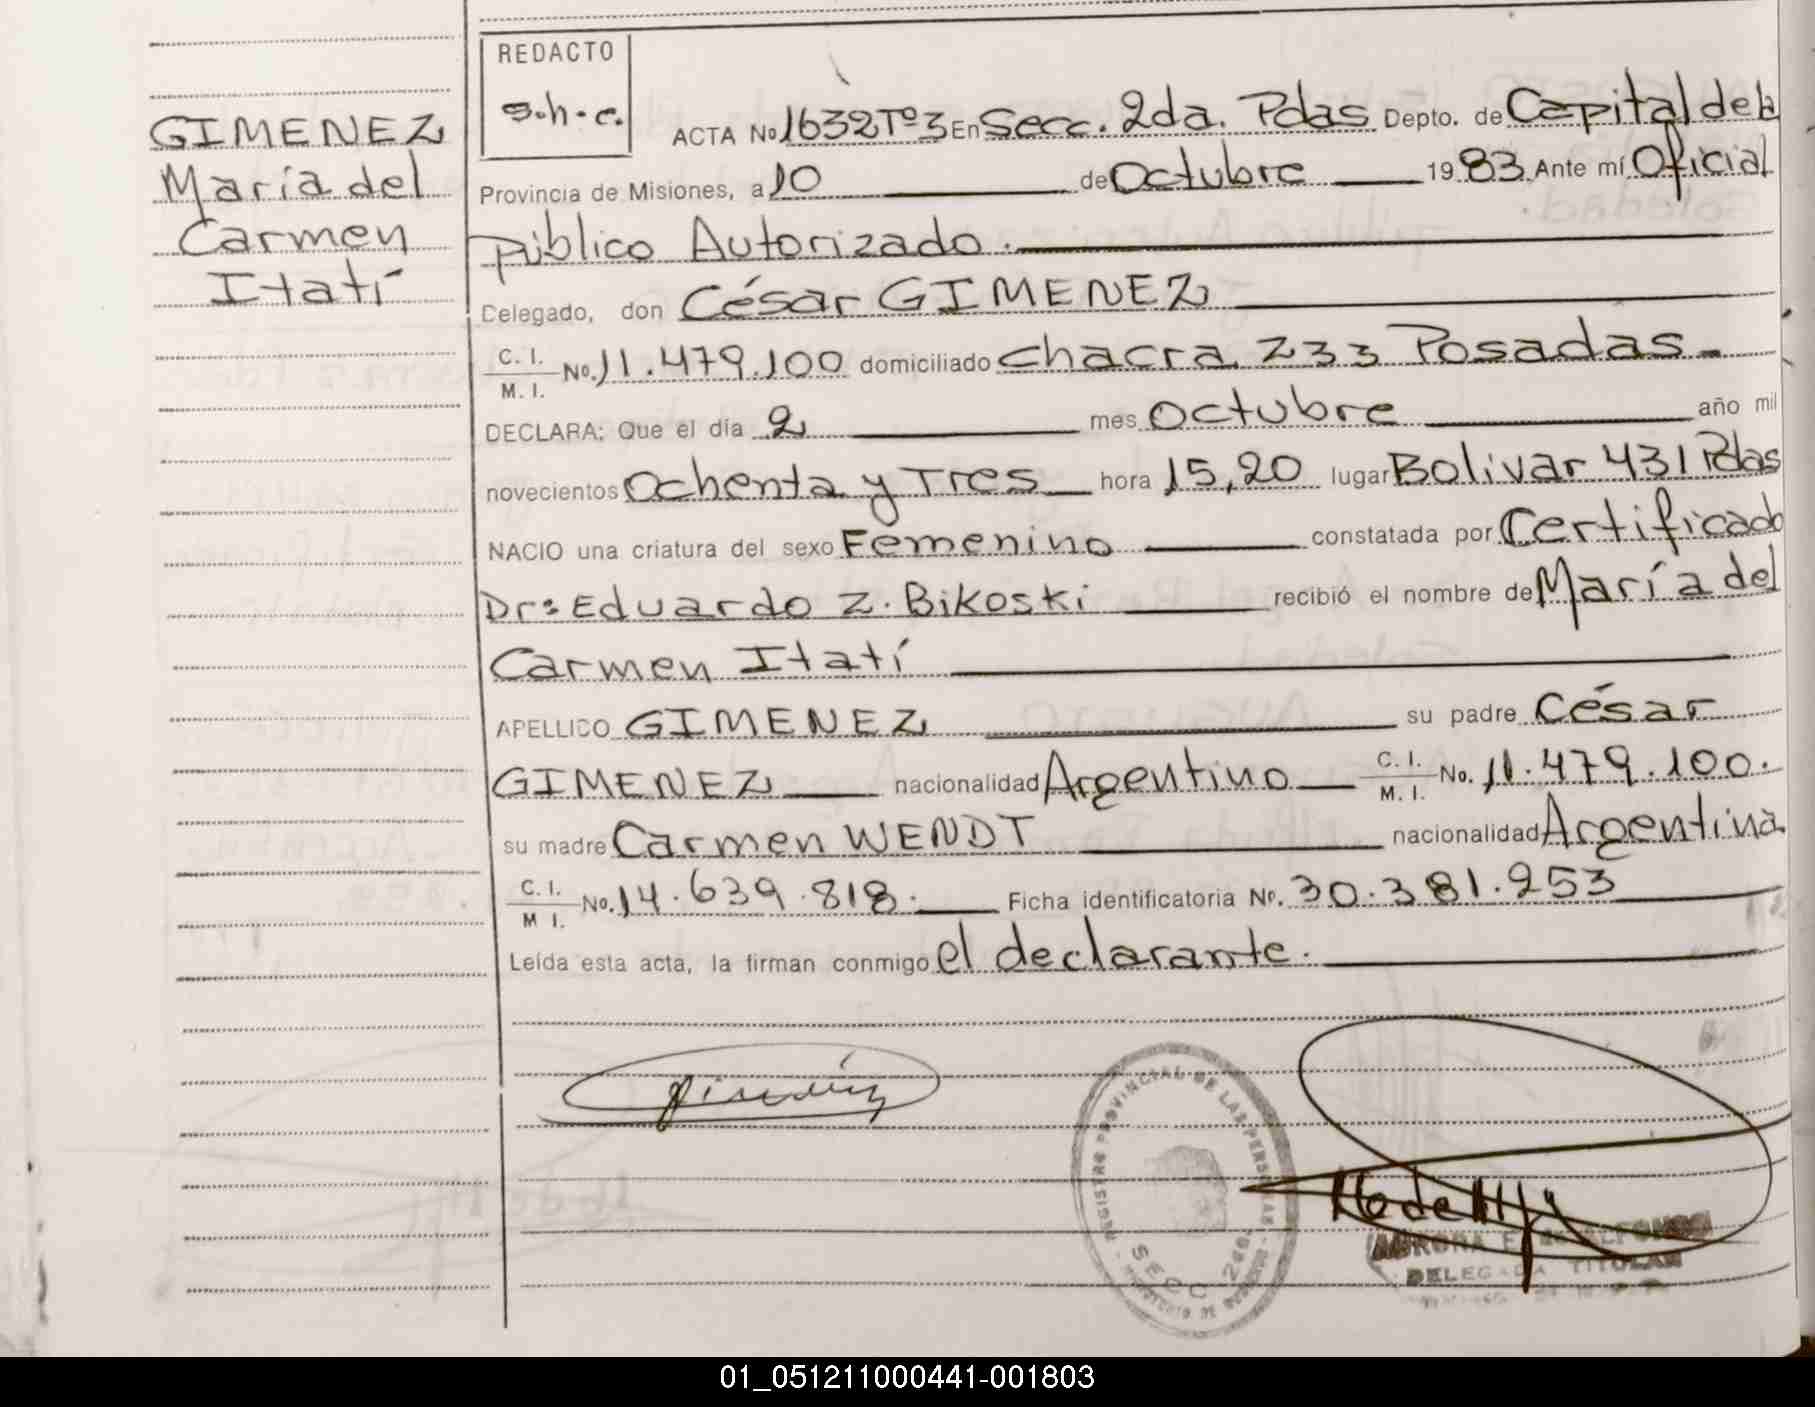 GIMENEZ
María del
Carmen
Itatí
REDACTO
s.h.c.
ACTA No 1632 Tº 3 En Secc. 2da. Pdas Depto. de Capital de la
Provincia de Misiones, a 10 de Octubre 1983 Ante mí Oficial
Público Autorizado.
Delegado, don César GIMENEZ
C. I.
M. I. No. 11.479.100 domiciliado Chacra 233 Posadas-
DECLARA: Que el día 2 mes Octubre año mil
novecientos Ochenta y Tres hora 15,20 lugar Bolivar 431 Pdas
NACIO una criatura del sexo Femenino constatada por Certificado
Dr: Eduardo Z. Bikoski recibió el nombre de María del
Carmen Itatí
APELLIDO GIMENEZ su padre César
GIMENEZ nacionalidad Argentino C. I.
M. I. No. 11.479.100.
su madre Carmen WENDT nacionalidad Argentina
C. I.
M I. No. 14.639.818. Ficha identificatoria No. 30.381.253
Leída esta acta, la firman conmigo el declarante.
REGISTRO PROVINCIAL DE LAS PERSONAS
SECC 2da
DELEGADA TITULAR
01_051211000441-001803